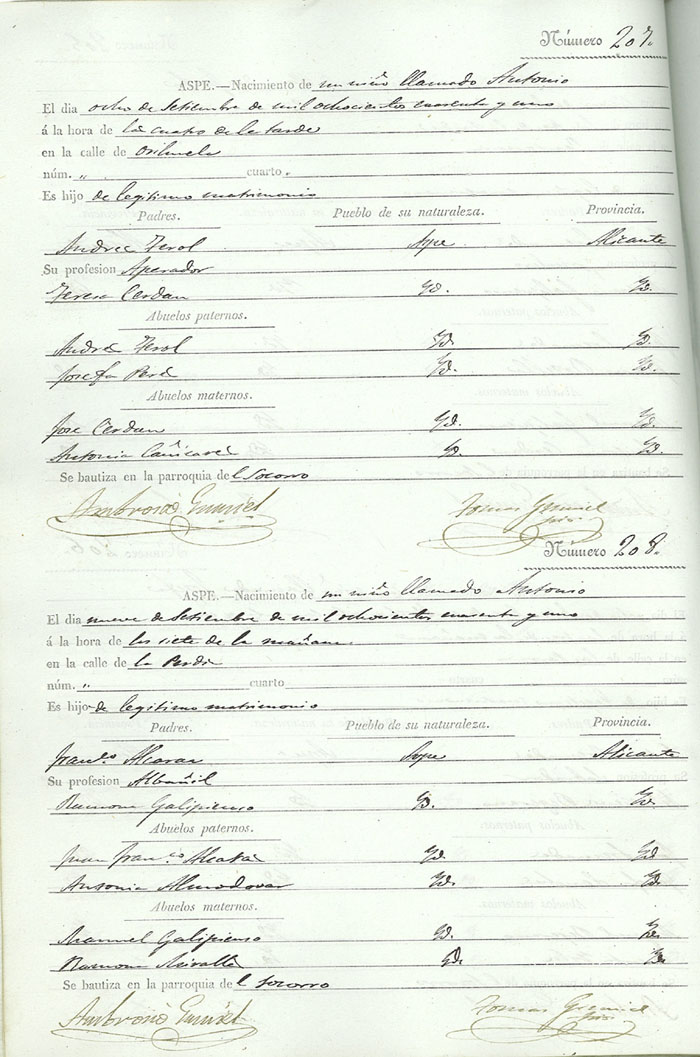 Número 207.
ASPE.—Nacimiento de un niño llamado Antonio
El dia ocho de Setiembre de mil ochocientos cuarenta y uno
á la hora de las cuatro de la tarde
en la calle de Orihuela
núm. „ cuarto „
Es hijo de legitimo matrimonio
Padres. Pueblo de su naturaleza. Provincia.
Andres Ferol Aspe Alicante
Su profesion Aperador
Teresa Cerdan Yd. Yd.
Abuelos paternos.
Andres Ferol Yd. Yd.
Josefa Yd. Yd.
Abuelos maternos.
Jose Cerdan Yd. Yd.
Antonia Cañizares Yd. Yd.
Se bautiza en la parroquia del Socorro
Ambrosio Tomas
Número 208.
ASPE.—Nacimiento de un niño llamado Antonio
El dia nueve de Setiembre de mil ochocientos cuarenta y uno
á la hora de las siete de la mañana
en la calle de la
núm. „ cuarto
Es hijo de legitimo matrimonio
Padres. Pueblo de su naturaleza. Provincia.
Franco. Alcaraz Aspe Alicante
Su profesion Albañil
Ramona Galipienso Yd. Yd.
Abuelos paternos.
Juan Franco. Alcaraz Yd. Yd.
Antonia Almodovar Yd. Yd.
Abuelos maternos.
Manuel Galipienso Yd. Yd.
Ramona Miralles Yd. Yd.
Se bautiza en la parroquia del Socorro
Ambrosio Tomas